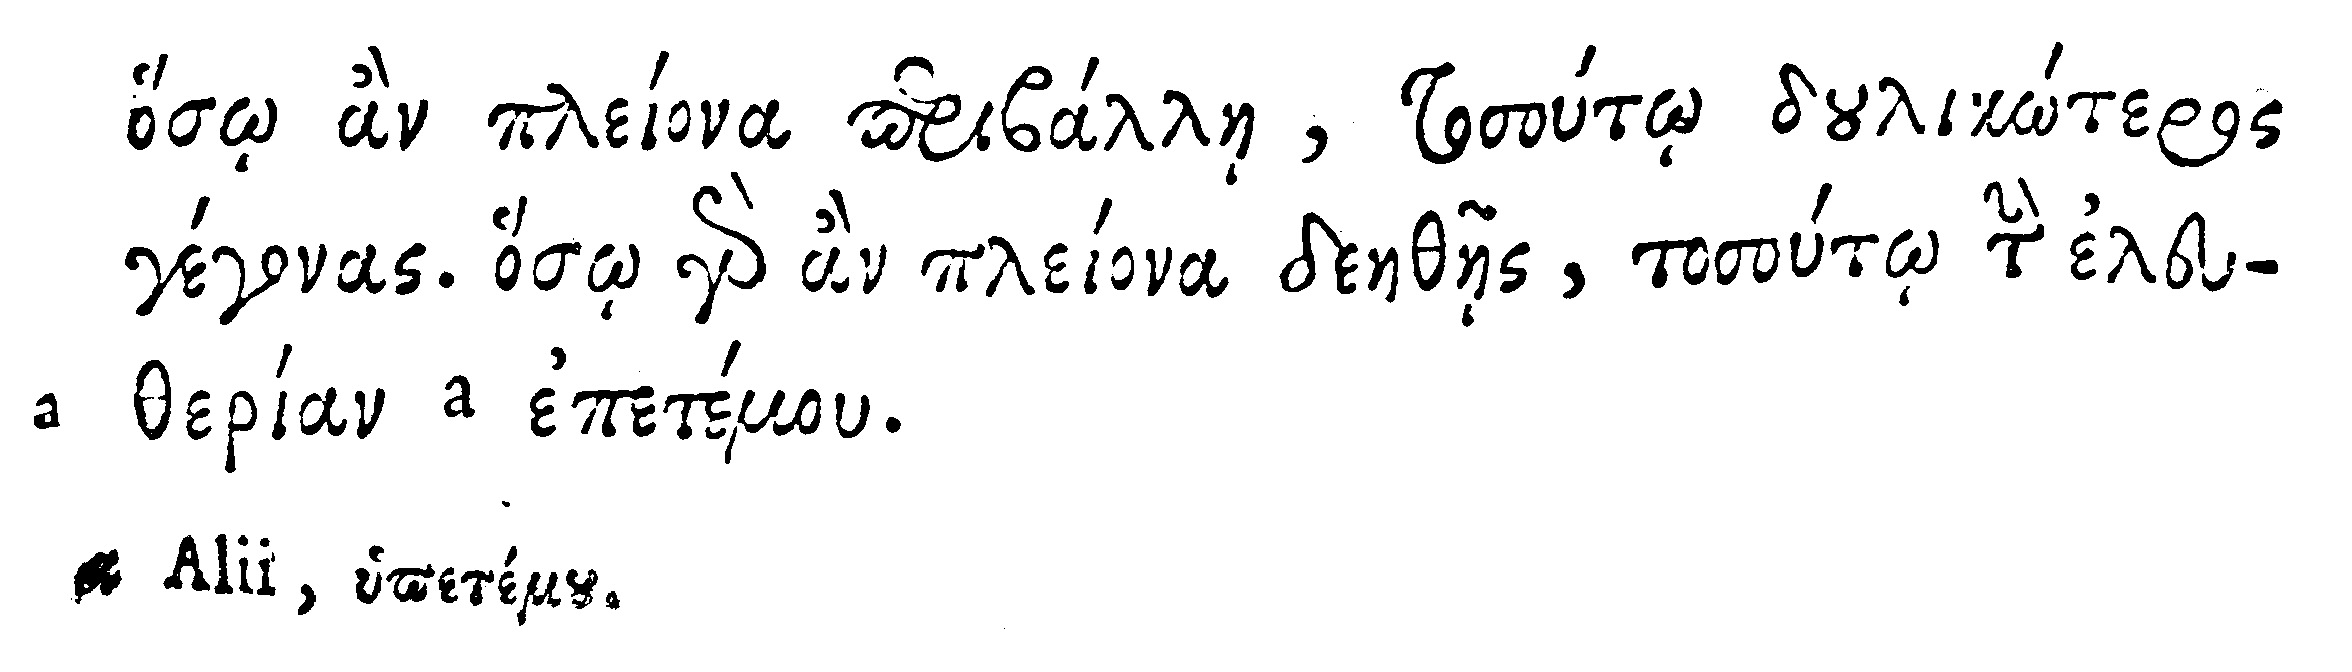 ὅσῳ ἂν πλείονα περιβάλλῃ, τοσούτῳ δουλικώτερος
γέγονας. ὅσῳ γὰρ ἂν πλείονα δεηθῇς, τοσούτῳ τὴν ἐλευ-
a θερίαν a ἐπετέμου.
a Alii, ὑπετέμου.